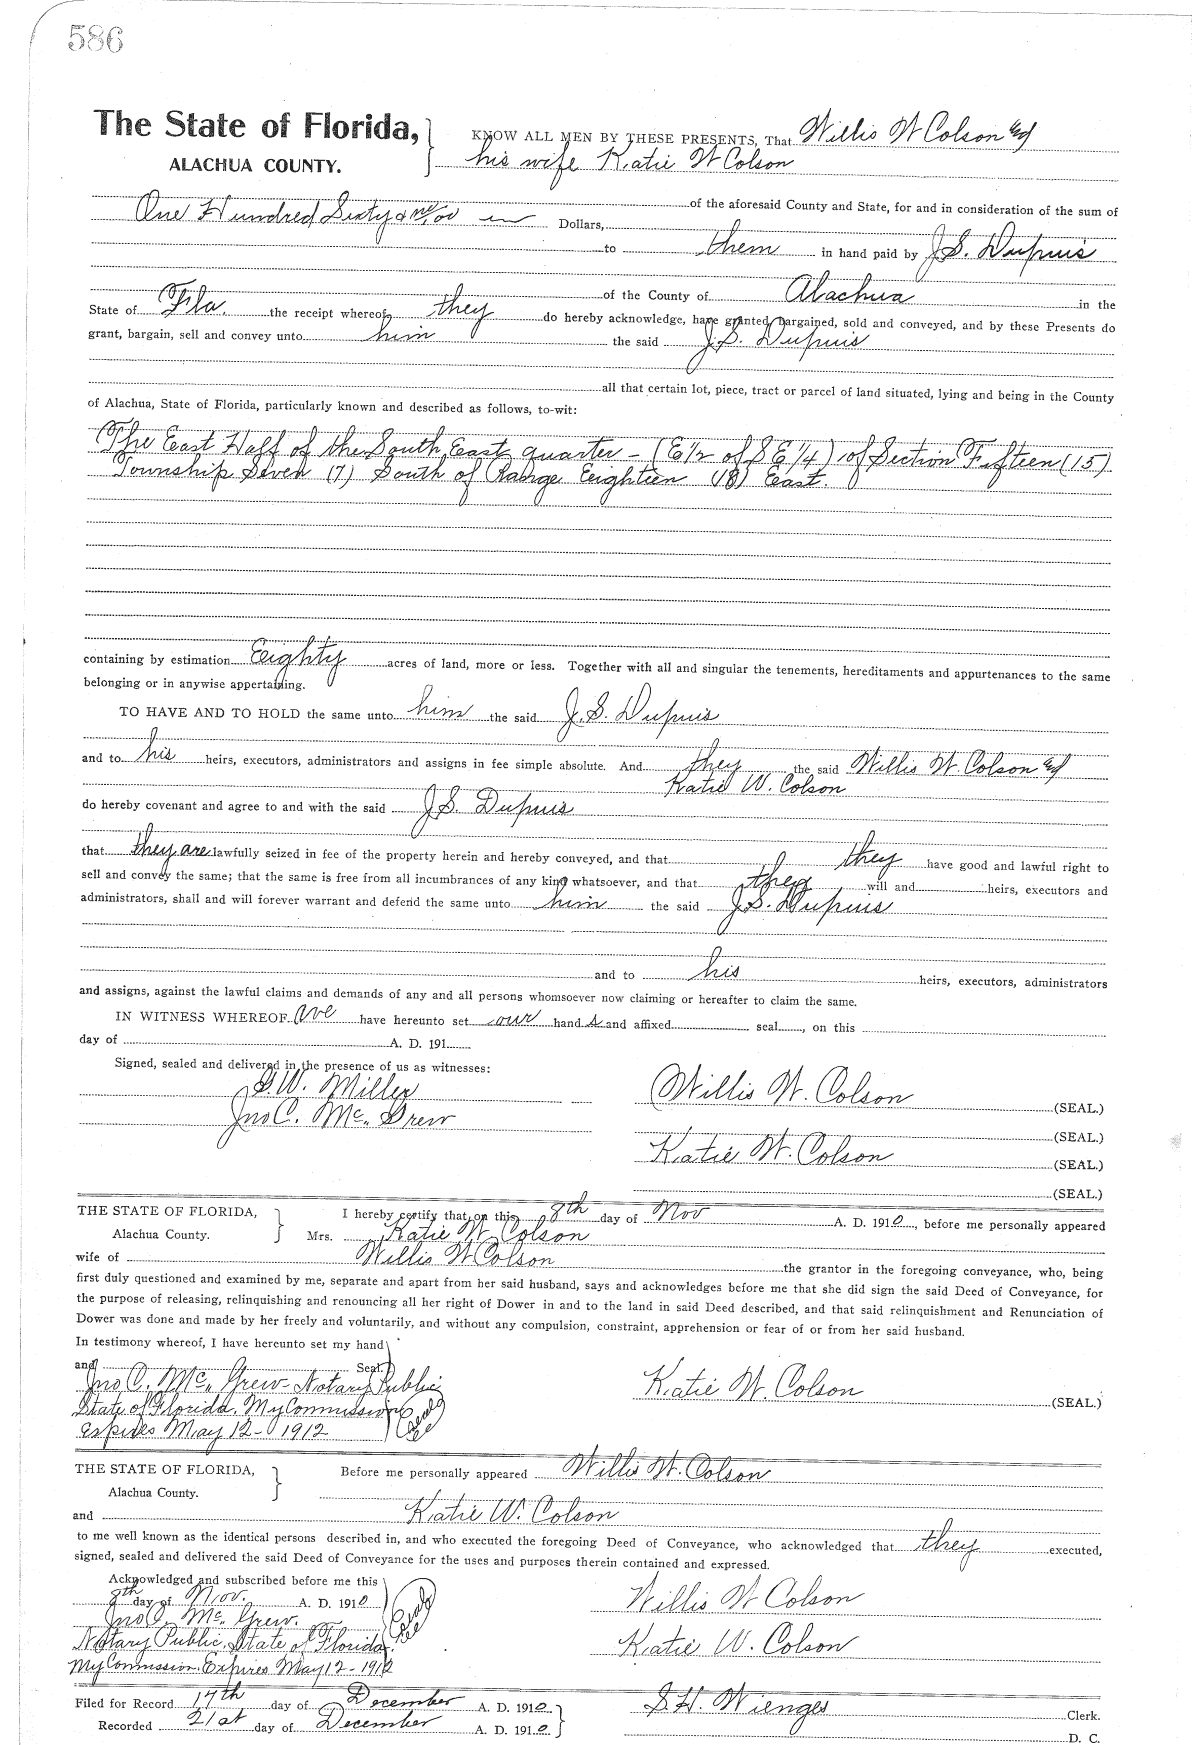 586
The State of Florida,
ALACHUA COUNTY.
KNOW ALL MEN BY THESE PRESENTS, That Willis W Colson &
his wife Katie W Colson
of the aforesaid County and State, for and in consideration of the sum of
One Hundred Sixty & no/00 Dollars,
to them in hand paid by J.S. Dupuis
of the County of Alachua in the
State of Fla. the receipt whereof they do hereby acknowledge, have granted, bargained, sold and conveyed, and by these Presents do
grant, bargain, sell and convey unto him the said J.S. Dupuis
all that certain lot, piece, tract or parcel of land situated, lying and being in the County
of Alachua, State of Florida, particularly known and described as follows, to-wit:
The East Half of the South East quarter - (E 1/2 of S E 1/4) of Section Fifteen (15)
Township Seven (7) South of Range Eighteen (18) East.
containing by estimation Eighty acres of land, more or less. Together with all and singular the tenements, hereditaments and appurtenances to the same
belonging or in anywise appertaining.
TO HAVE AND TO HOLD the same unto him the said J.S. Dupuis
and to his heirs, executors, administrators and assigns in fee simple absolute. And they the said Willis W. Colson &
Katie W. Colson
do hereby covenant and agree to and with the said J.S. Dupuis
that they are lawfully seized in fee of the property herein and hereby conveyed, and that they have good and lawful right to
sell and convey the same; that the same is free from all incumbrances of any king whatsoever, and that they will and heirs, executors and
administrators, shall and will forever warrant and defend the same unto him the said J.S. Dupuis
and to his heirs, executors, administrators
and assigns, against the lawful claims and demands of any and all persons whomsoever now claiming or hereafter to claim the same.
IN WITNESS WHEREOF, have hereunto set our hands and affixed seal, on this
day of A. D. 191
Signed, sealed and delivered in the presence of us as witnesses:
G.W. Miller
Jno C. Mc. Grew
Willis W. Colson (SEAL.)
(SEAL.)
Katie W. Colson (SEAL.)
(SEAL.)
THE STATE OF FLORIDA,
Alachua County.
I hereby certify that on this 8th day of Nov A. D. 1910, before me personally appeared
Mrs. Katie W Colson
wife of Willis W Colson the grantor in the foregoing conveyance, who, being
first duly questioned and examined by me, separate and apart from her said husband, says and acknowledges before me that she did sign the said Deed of Conveyance, for
the purpose of releasing, relinquishing and renouncing all her right of Dower in and to the land in said Deed described, and that said relinquishment and Renunciation of
Dower was done and made by her freely and voluntarily, and without any compulsion, constraint, apprehension or fear of or from her said husband.
In testimony whereof, I have hereunto set my hand
and Seal.
Jno C. Mc. Grew - Notary Public
State of Florida. My Commission
Expires May 12 - 1912
Katie W. Colson (SEAL.)
THE STATE OF FLORIDA,
Alachua County.
Before me personally appeared Willis W. Colson
and Katie W. Colson
to me well known as the identical persons described in, and who executed the foregoing Deed of Conveyance, who acknowledged that they executed,
signed, sealed and delivered the said Deed of Conveyance for the uses and purposes therein contained and expressed.
Acknowledged and subscribed before me this
8th day of Nov. A. D. 1910
Jno C. Mc. Grew.
Notary Public, State of Florida
My Commission Expires May 12 - 1912
Willis W Colson
Katie W. Colson
Filed for Record 17th day of December A. D. 1910.
Recorded 21st day of December A. D. 1910.
S.H. Wienges Clerk.
D. C.